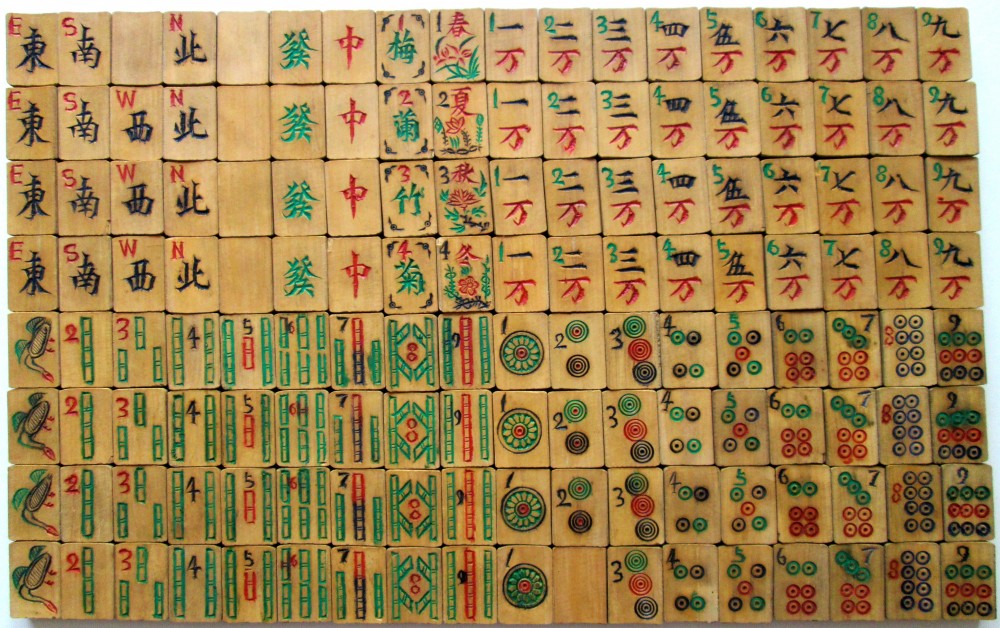 E 東 S 南 N 北 發 中 1 梅 春 1 一万 2 二万 3 三万 4 四万 5 伍万 6 六万 7 七万 8 八万 9 九万
E 東 S 南 W 西 N 北 發 中 2 蘭 2 夏 1 一万 2 二万 3 三万 4 四万 5 伍万 6 六万 7 七万 8 八万 9 九万
E 東 S 南 W 西 N 北 發 中 3 竹 3 秋 1 一万 2 二万 3 三万 4 四万 5 伍万 6 六万 7 七万 8 八万 9 九万
E 東 S 南 W 西 N 北 發 中 4 菊 4 冬 1 一万 2 二万 3 三万 4 四万 5 伍万 6 六万 7 七万 8 八万 9 九万
2 3 4 5 6 7 9 1 2 3 4 5 6 7 8 9
2 3 4 5 6 7 9 1 2 3 4 5 6 7 8 9
2 3 4 5 6 7 9 1 2 3 4 5 6 7 8 9
2 3 4 5 6 7 9 1 3 4 5 6 7 8 9